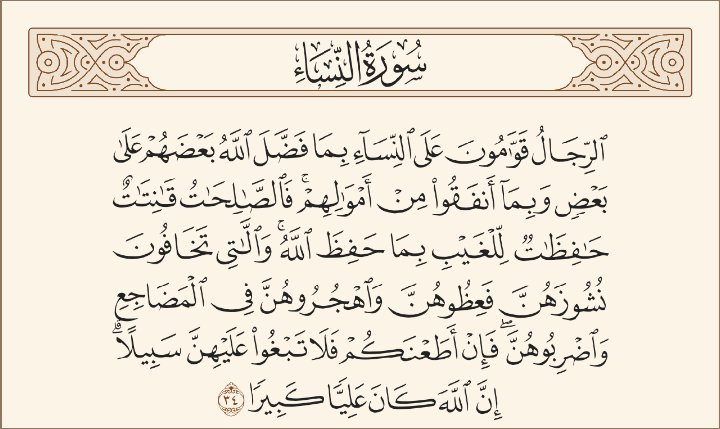 سُورَةُ النِّسَاءِ
ٱلرِّجَالُ قَوَّٰمُونَ عَلَى ٱلنِّسَآءِ بِمَا فَضَّلَ ٱللَّهُ بَعۡضَهُمۡ عَلَىٰ
بَعۡضٖ وَبِمَآ أَنفَقُواْ مِنۡ أَمۡوَٰلِهِمۡۚ فَٱلصَّٰلِحَٰتُ قَٰنِتَٰتٌ
حَٰفِظَٰتٞ لِّلۡغَيۡبِ بِمَا حَفِظَ ٱللَّهُۚ وَٱلَّٰتِي تَخَافُونَ
نُشُوزَهُنَّ فَعِظُوهُنَّ وَٱهۡجُرُوهُنَّ فِي ٱلۡمَضَاجِعِ
وَٱضۡرِبُوهُنَّۖ فَإِنۡ أَطَعۡنَكُمۡ فَلَا تَبۡغُواْ عَلَيۡهِنَّ سَبِيلًاۗ
إِنَّ ٱللَّهَ كَانَ عَلِيّٗا كَبِيرٗا ٣٤